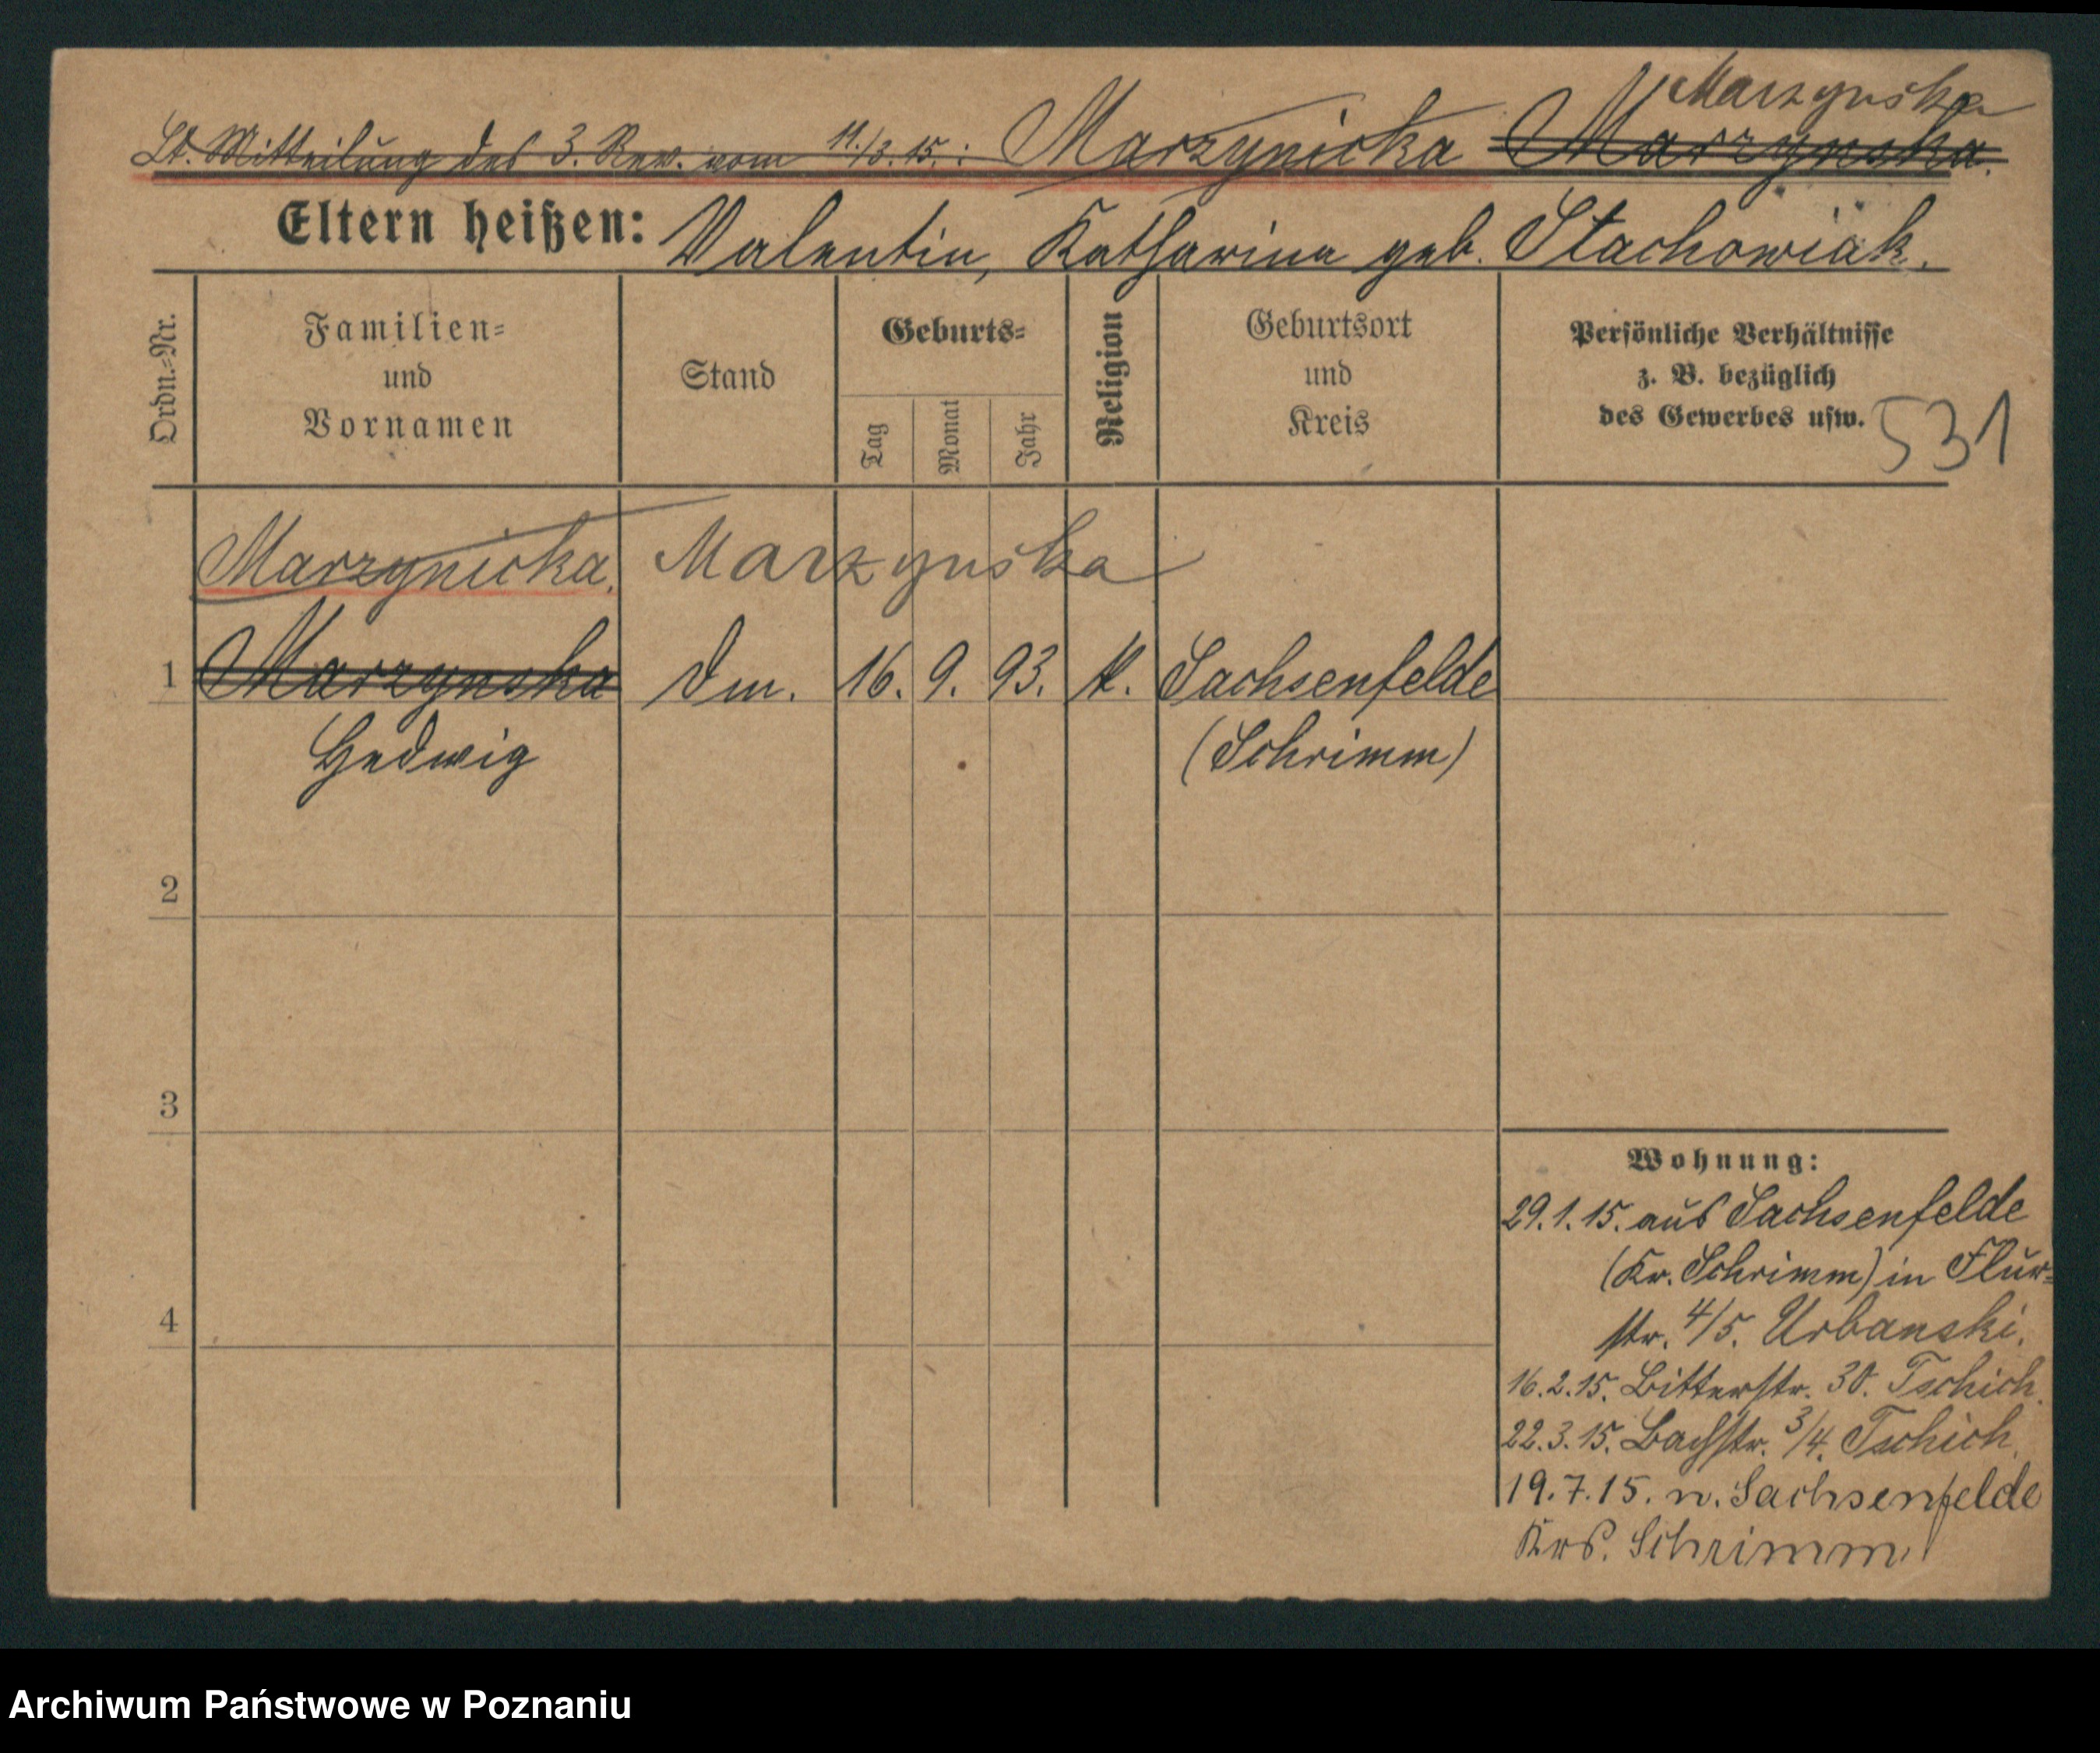 Marzynska
Lt. Mitteilung des 3. Rev. vom 11./3. 15.: Marzynicka Marzynska.
Eltern heißen: Valentin, Katharina geb. Stachowiak.
Ordn.-Nr.
Familien-
und
Vornamen
Stand
Geburts-
Tag
Monat
Jahr
Religion
Geburtsort
und
Kreis
Persönliche Verhältnisse
z. B. bezüglich
des Gewerbes usw.
531
Marzynicka. Marzynska
1 Marzynska Dm. 16. 9. 93. k. Sachsenfelde
Hedwig (Schrimm)
2
3
4
Wohnung:
29.1.15. aus Sachsenfelde
(Kr. Schrimm) in Flur-
str. 4/5. Urbanski.
16.2.15. Bitterstr. 30. Tschich.
22.3.15. Bachstr. 3/4. Tschich.
19.7.15. n. Sachsenfelde
Krs. Schrimm
Archiwum Państwowe w Poznaniu